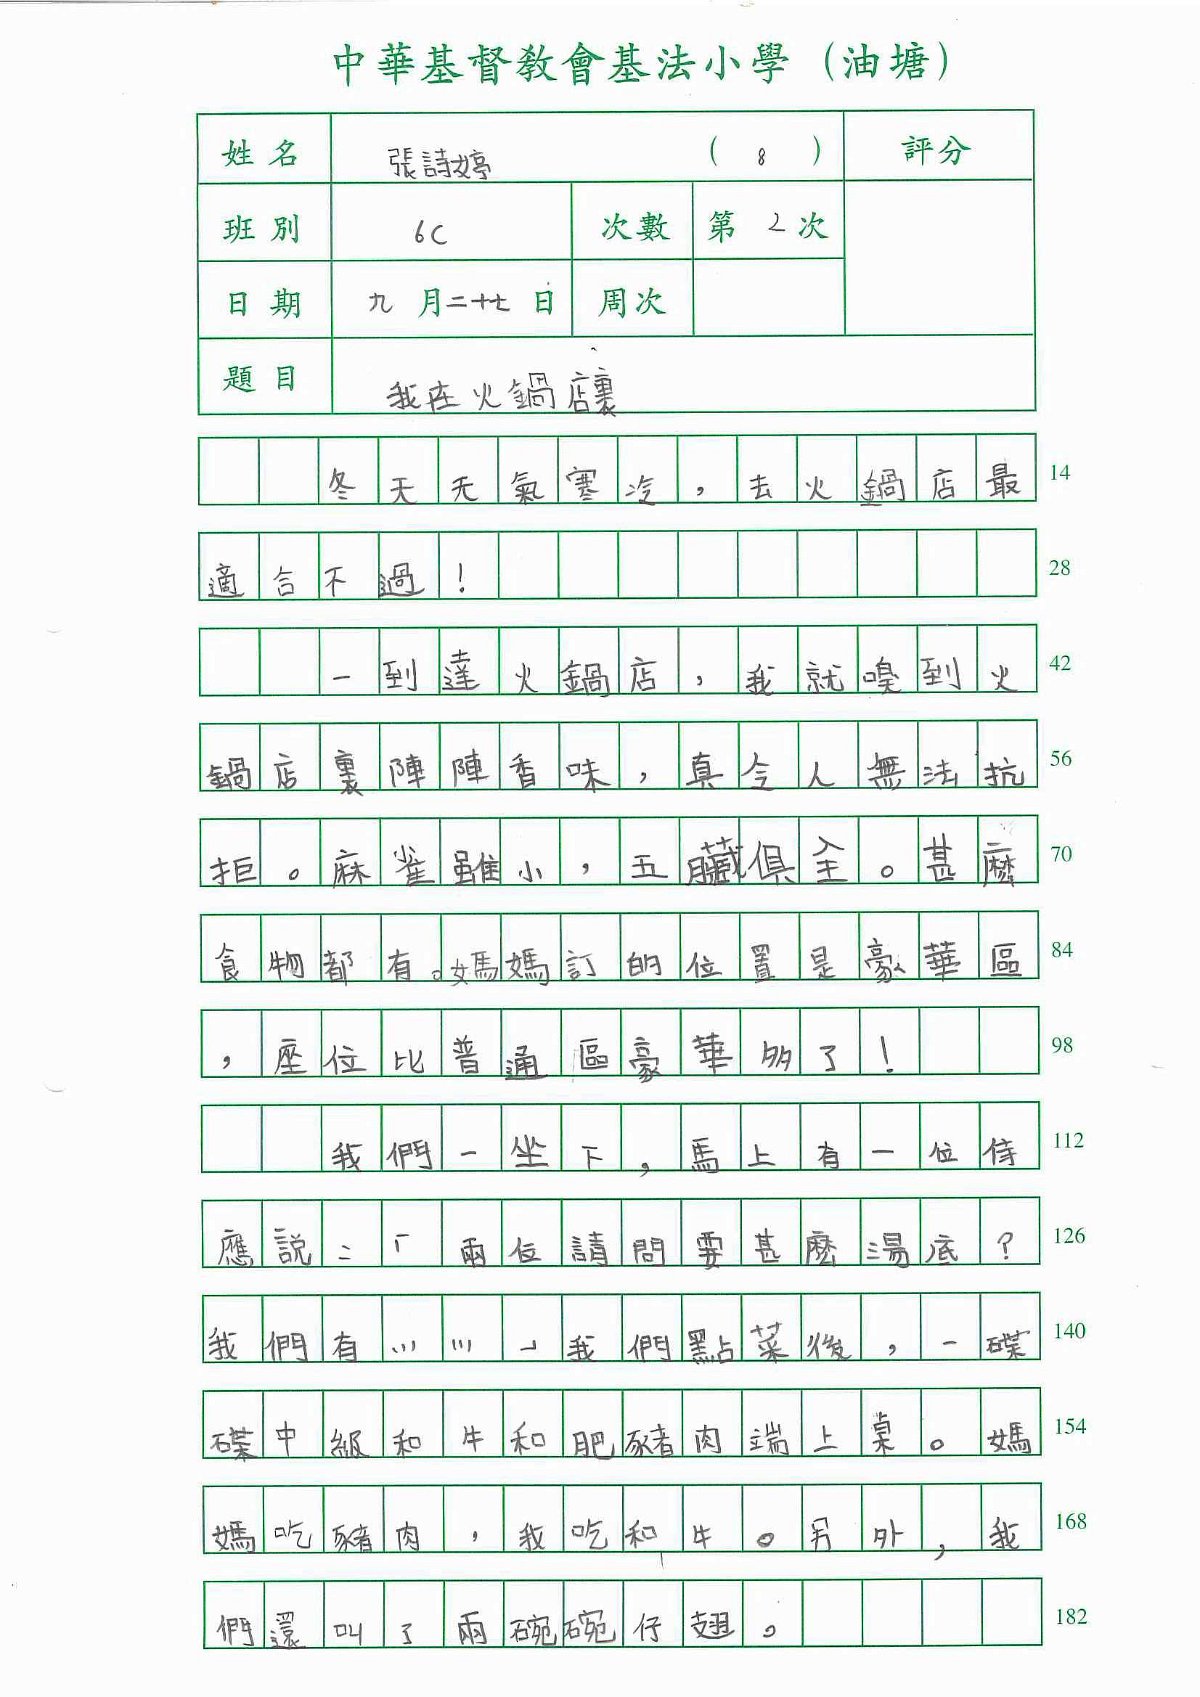 中華基督教會基法小學（油塘）
姓名 張詩婷 （ 8 ） 評分
班別 6C 次數 第 2 次
日期 九 月 二十七 日 周次
題目 我在火鍋店裏
冬天天氣寒冷，去火鍋店最 14
適合不過！ 28
一到達火鍋店，我就嗅到火 42
鍋店裏陣陣香味，真令人無法抗 56
拒。麻雀雖小，五臟俱全。甚麼 70
食物都有。媽媽訂的位置是豪華區 84
，座位比普通區豪華多了！ 98
我們一坐下，馬上有一位侍 112
應說：「兩位請問要甚麼湯底？ 126
我們有……」我們點菜後，一碟 140
碟中級和牛和肥豬肉端上桌。媽 154
媽吃豬肉，我吃和牛。另外，我 168
們還叫了兩碗碗仔翅。 182